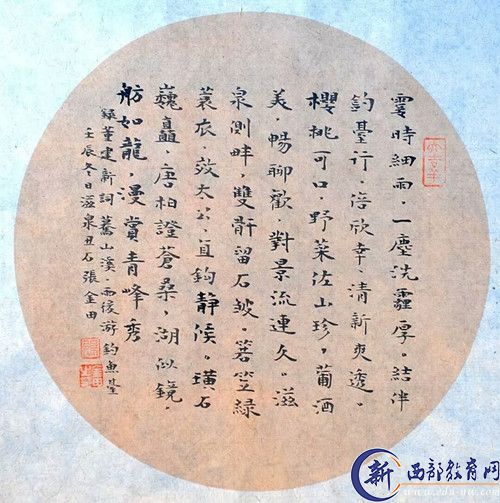 霎時細雨，一塵洗霾厚。結伴
釣臺行，倍欣幸、清新爽透。
櫻桃可口，野菜佐山珍，葡酒
美，暢聊歡，對景流連久。滋
泉側畔，雙骭留石皱。箬笠緑
蓑衣，效太公、直鈎静候。璜石
巍矗，唐柏證蒼桑，湖似鏡，
舫如龍，漫賞青峰秀
録董建新詞驀山溪·雨後游釣魚臺
壬辰冬日滋泉丑石張金田
新 西部教育网